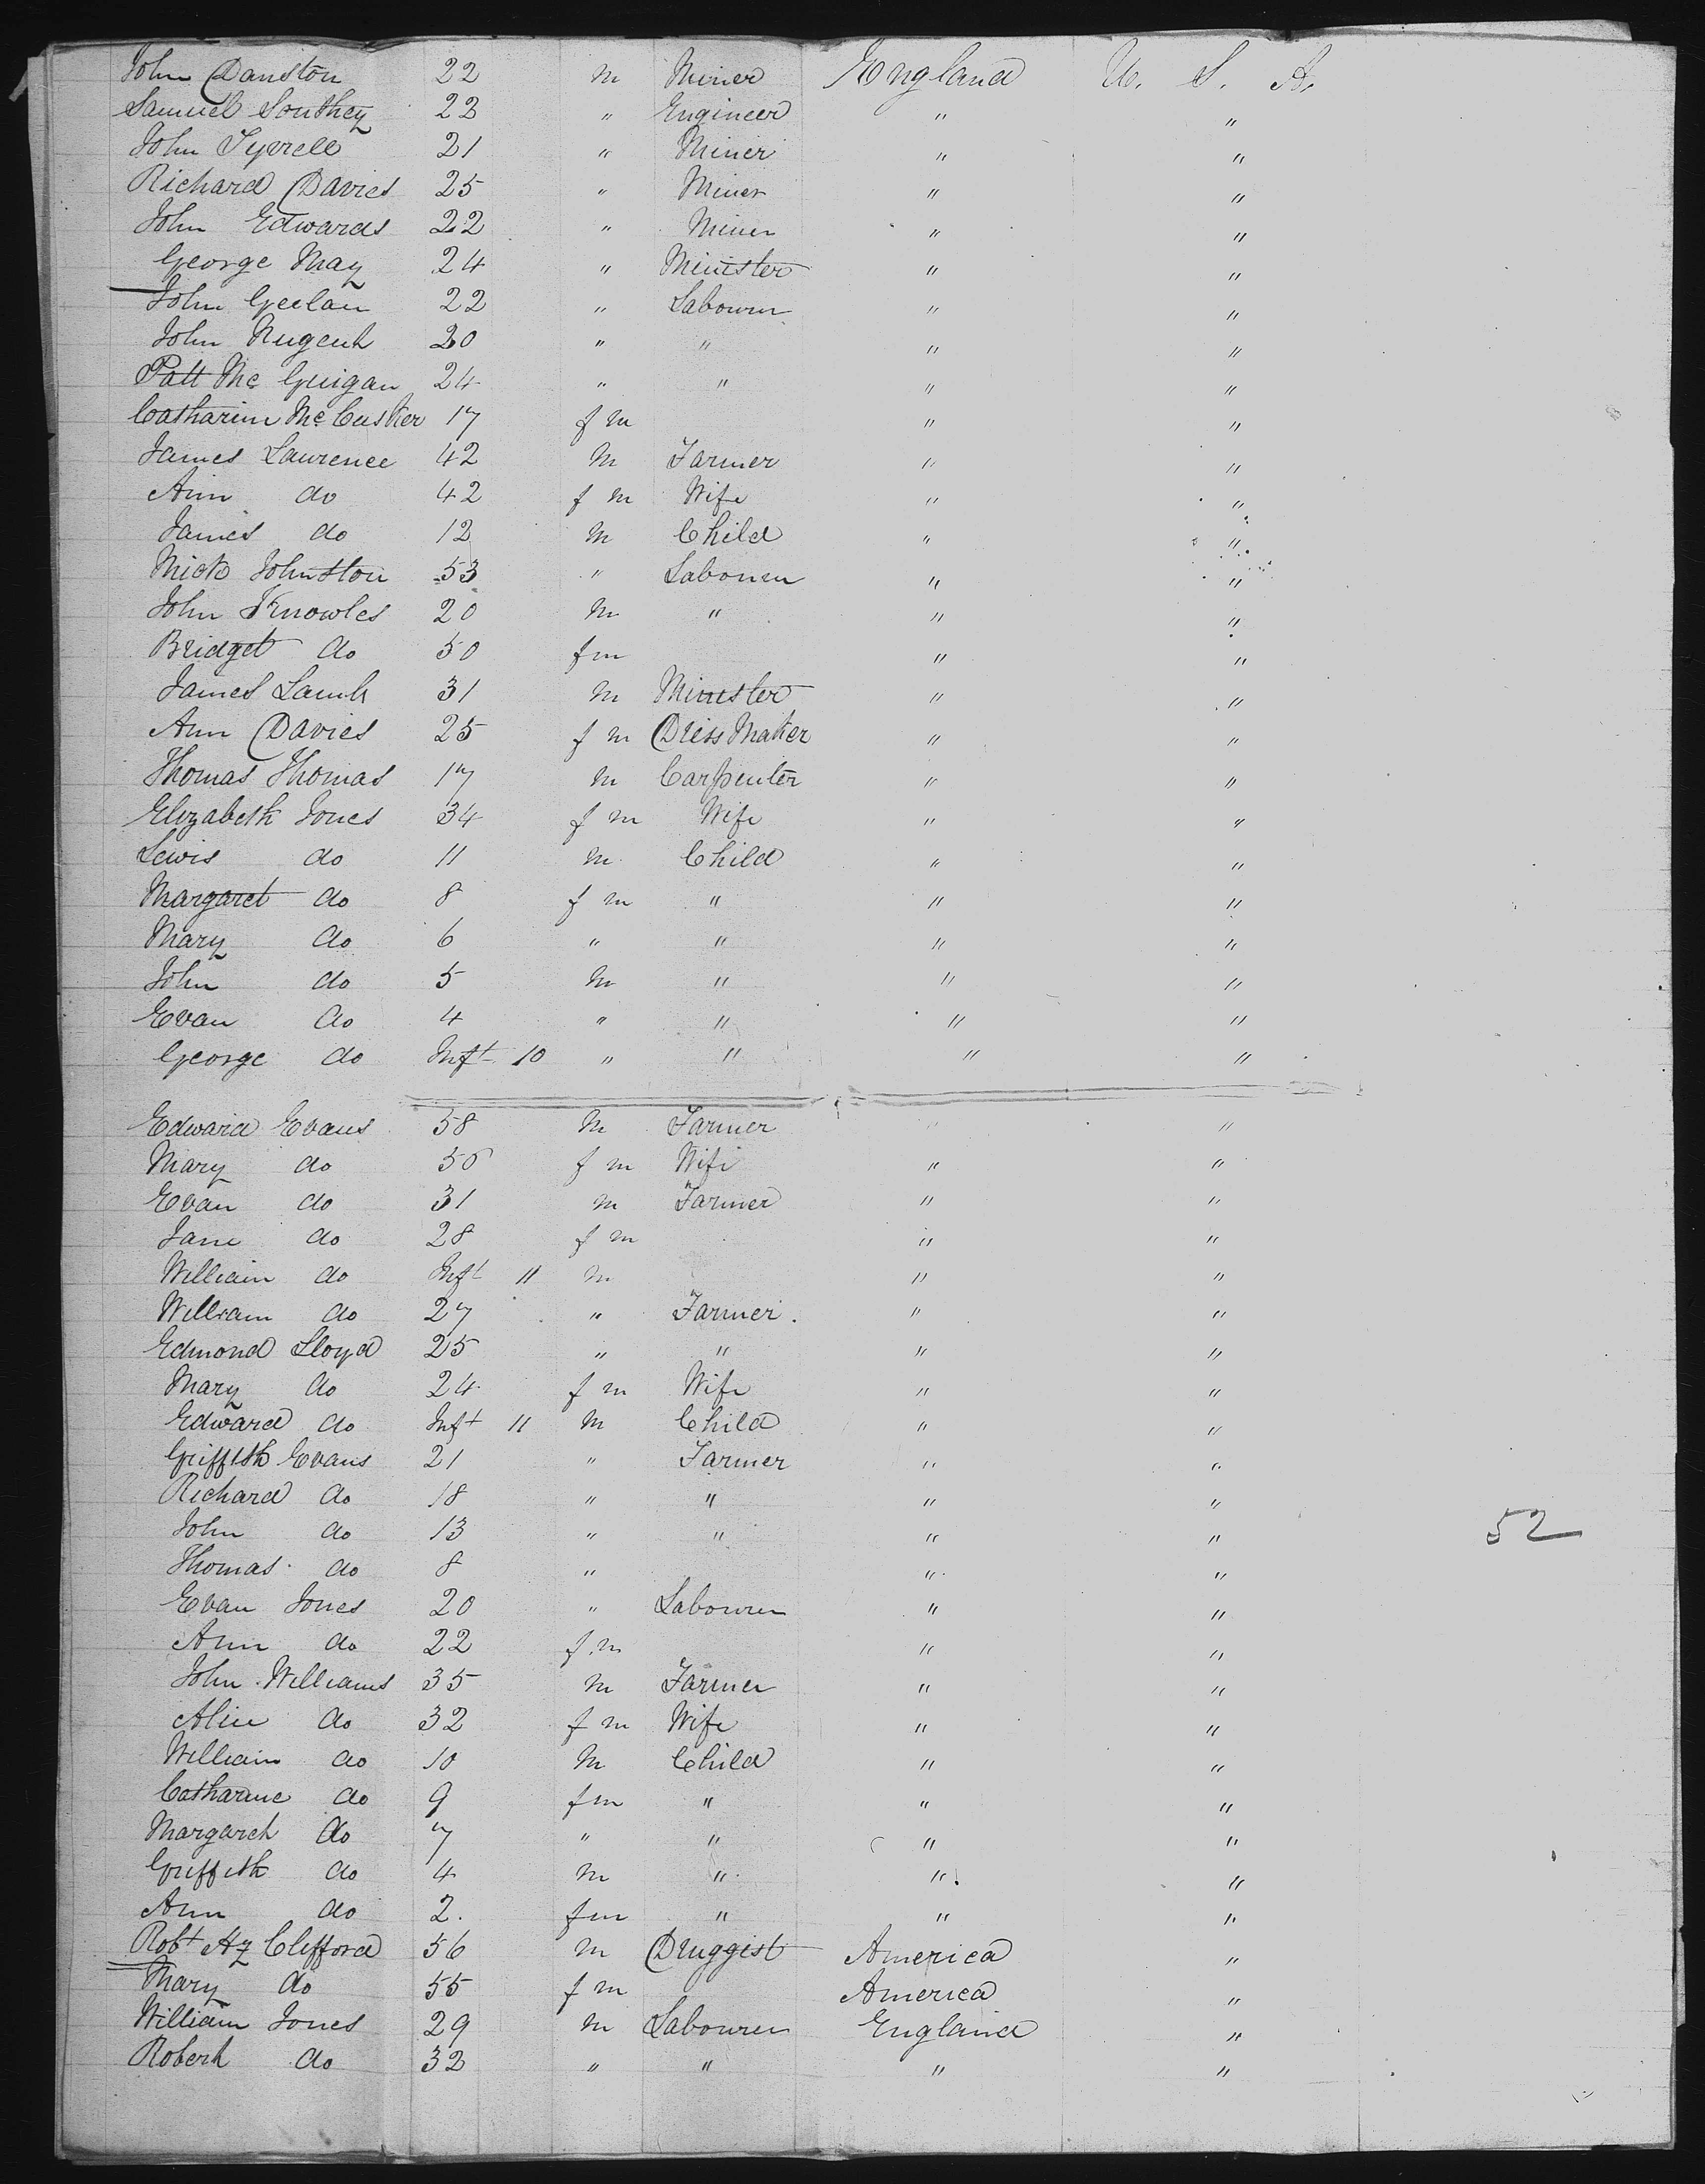 John Danston 22 m Miner England U. S. A.
Samuel Southey 23 " Engineer " "
John Tyrrell 21 " Miner " "
Richard Davies 25 " Miner " "
John Edwards 22 " Miner " "
George May 24 " Minister " "
John Geelan 22 " Labourer " "
John Nugent 20 " " " "
Patt Mc Guigan 24 " " " "
Catharine Mc Cusker 17 f m " "
James Lawrence 42 m Farmer " "
Ann do 42 f m Wife " "
James do 12 m Child " "
Mick Johnston 53 " Labourer " "
John Knowles 20 m " " "
Bridget do 50 fm " "
James Lamb 31 m Minister " "
Ann Davies 25 f m Dress Maker " "
Thomas Thomas 17 m Carpenter " "
Elizabeth Jones 34 f m Wife " "
Lewis do 11 m Child " "
Margaret do 8 f m " " "
Mary do 6 " " " "
John do 5 m " " "
Evan do 4 " " " "
George do Inft 10 " " " "
Edward Evans 58 m Farmer " "
Mary do 56 f m Wife " "
Evan do 31 m Farmer " "
Jane do 28 f m " "
William do Inft 11 m " "
William do 27 " Farmer " "
Edmond Lloyd 25 " " " "
Mary do 24 f m Wife " "
Edward do Inft 11 m Child " "
Griffith Evans 21 " Farmer " "
Richard do 18 " " " "
John do 13 " " " " 52
Thomas do 8 " " "
Evan Jones 20 " Labourer " "
Ann do 22 f m " "
John Williams 35 m Farmer " "
Alice do 32 f m Wife " "
William do 10 m Child " "
Catharine do 9 fm " " "
Margaret do 7 " " " "
Griffith do 4 m " " "
Ann do 2 fm " " "
Robt Clifford 56 m Druggist America "
Mary do 55 f m America "
William Jones 29 m Labourer England "
Robert do 32 " " " "